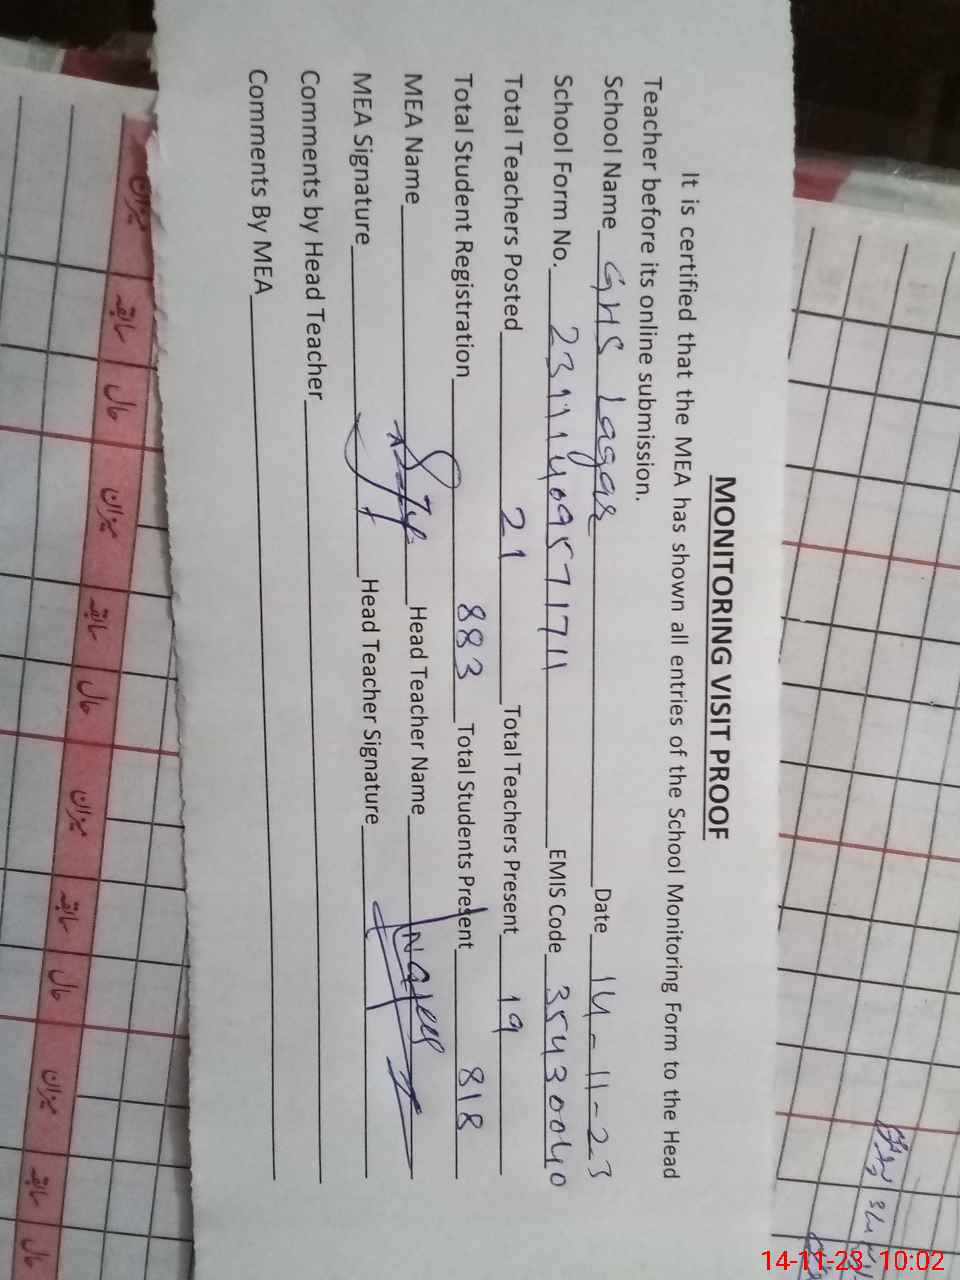 MONITORING VISIT PROOF
It is certified that the MEA has shown all entries of the School Monitoring Form to the Head
Teacher before its online submission.
School Name GHS Lagar Date 14-11-23
School Form No. EMIS Code 35430040
Total Teachers Posted 21 Total Teachers Present 19
Total Student Registration 883 Total Students Present 818
MEA Name Head Teacher Name
MEA Signature Head Teacher Signature
Comments by Head Teacher
Comments By MEA
میزان سابقہ حال میزان سابقہ حال میزان سابقہ حال میزان سابقہ حال
14-11-23 10:02